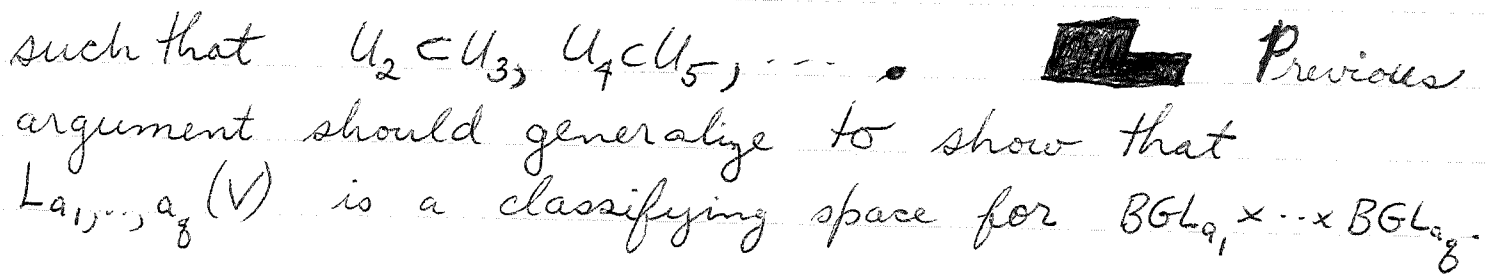 such that U₂ ⊂ U₃, U₄ ⊂ U₅, --- . Previous
argument should generalize to show that
L_{a₁,..,a_q}(V) is a classifying space for BGL_{a₁} × ·· × BGL_{a_q}.